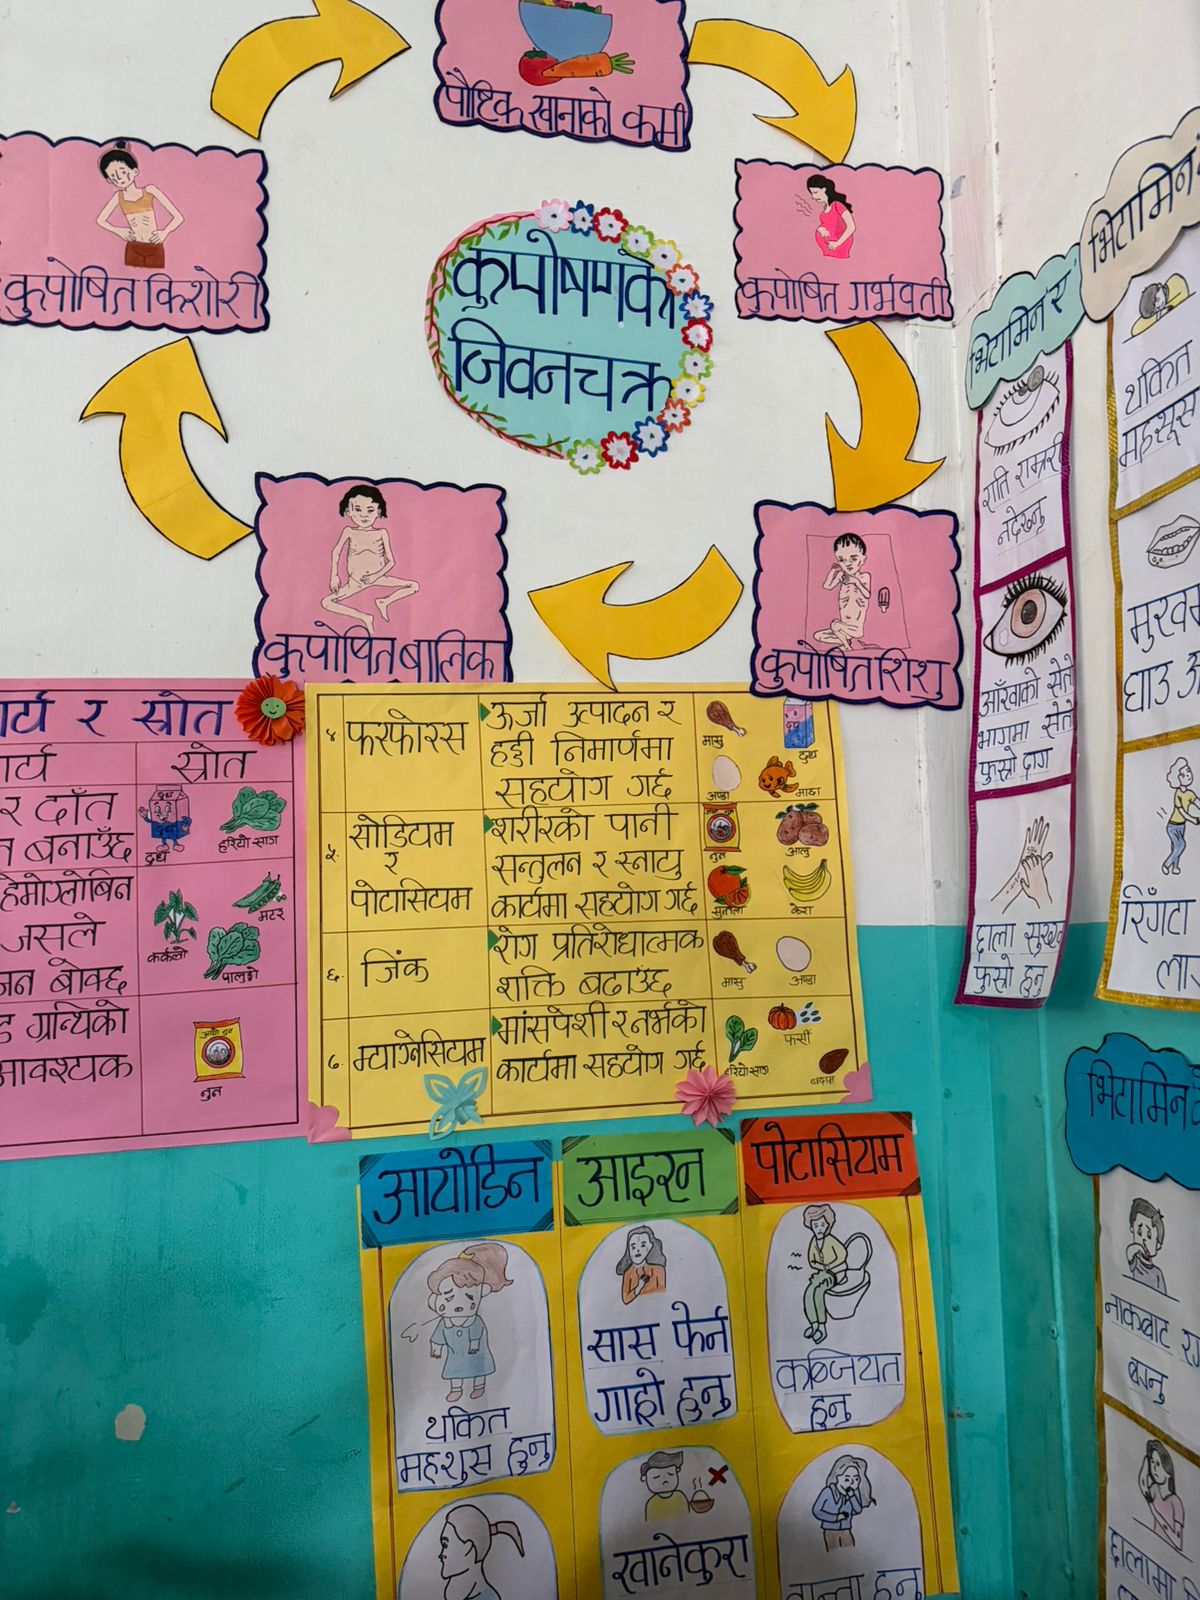 पौष्टिक खानाको कमी
कुपोषित गर्भवती
कुपोषित शिशु
कुपोषित बालिका
कुपोषित किशोरी
कुपोषणको
जिवनचक्र
र स्रोत
स्रोत
र दाँत
बनाउँछ
दुध
दुध
हरियो साग
हेमोग्लोबिन
जसले
बोक्छ
कर्कलो
मटर
पालुङ्गो
ग्रन्थिको
आवश्यक
नुन
४ फस्फोरस
ऊर्जा उत्पादन र
हड्डी निमार्णमा
सहयोग गर्छ
मासु
दुध
अण्डा
माछा
५. सोडियम
र
पोटासियम
शरीरको पानी
सन्तुलन र स्नायु
कार्यमा सहयोग गर्छ
नुन
आलु
सुन्तला
केरा
६. जिंक
रोग प्रतिरोधात्मक
शक्ति बढाउँछ
मासु
अण्डा
७. म्याग्नेसियम
मांसपेशी र नर्भको
कार्यमा सहयोग गर्छ
हरियो साग
फर्सी
बदाम
आयोडिन
थकित
महशुस हुनु
आइरन
सास फेर्न
गाह्रो हुनु
खानेकुरा
पोटासियम
कब्जियत
हुनु
हुनु
भिटामिन 'ए'
राति राम्ररी
नदेख्नु
आँखाको सेतो
भागमा सेतो
फुस्रो दाग
छाला सुख्खा
फुस्रो हुनु
भिटामिन
थकित
महसूस
घाउ
रिँगटा
भिटामिन
नाकबाट
बग्नु
छालामा